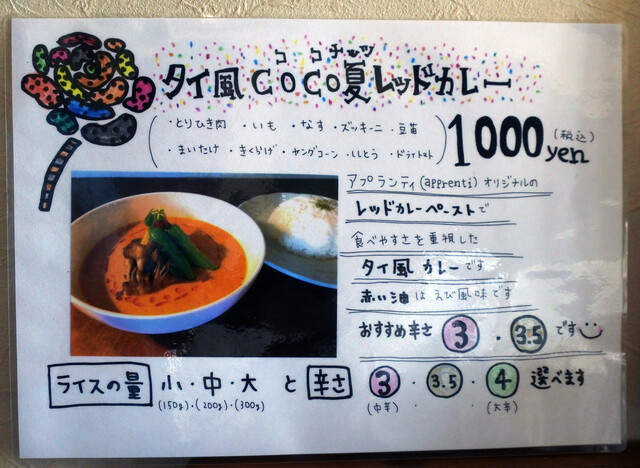 ココナッツ
タイ風COCO夏レッドカレー
・とりひき肉 ・いも ・なす ・ズッキーニ ・豆苗
・まいたけ ・きくらげ ・ヤングコーン ・ししとう ・ドライトマト
1000yen
(税込)
アプランティ(apprenti)オリジナルの
レッドカレーペーストで
食べやすさを重視した
タイ風カレーです
赤い油はえび風味です
おすすめ辛さ 3・3.5です
ライスの量 小・中・大 と 辛さ 3・3.5・4 選べます
(150g)・(200g)・(300g) (中辛)・・(大辛)